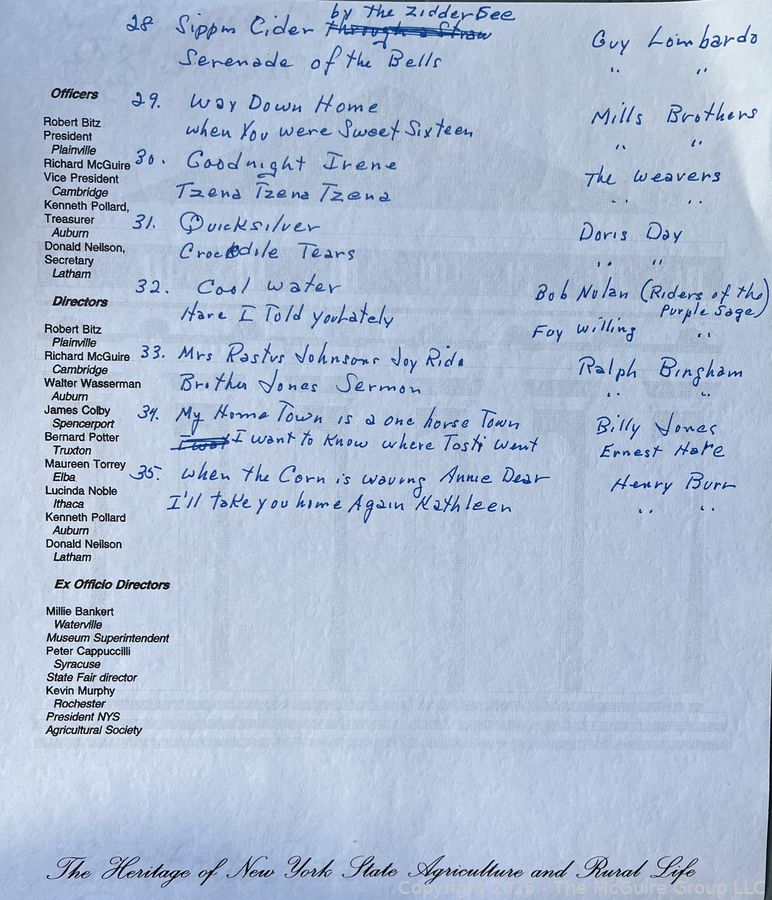 by the Zidder Gee
28 Sippm Cider through a Straw
Guy Lombardo
Serenade of the Bells
" "
29. Way Down Home
Mills Brothers
when You were Sweet Sixteen
" "
30. Goodnight Irene
The Weavers
Tzena Tzena Tzena
" "
31. Quicksilver
Doris Day
Crocodile Tears
" "
32. Cool Water
Bob Nolan (Riders of the
Purple Sage)
Have I Told you Lately
Foy Willing "
33. Mrs Rastus Johnsons Joy Ride
Ralph Bingham
Brother Jones Sermon
" "
34. My Home Town is a one horse Town
Billy Jones
I want to Know where Tosti went
Ernest Hare
35. when the Corn is waving Annie Dear
Henry Burr
I'll take you home Again Kathleen
" "
Officers
Robert Bitz
President
Plainville
Richard McGuire
Vice President
Cambridge
Kenneth Pollard,
Treasurer
Auburn
Donald Neilson,
Secretary
Latham
Directors
Robert Bitz
Plainville
Richard McGuire
Cambridge
Walter Wasserman
Auburn
James Colby
Spencerport
Bernard Potter
Truxton
Maureen Torrey
Elba
Lucinda Noble
Ithaca
Kenneth Pollard
Auburn
Donald Neilson
Latham
Ex Officio Directors
Millie Bankert
Waterville
Museum Superintendent
Peter Cappuccilli
Syracuse
State Fair director
Kevin Murphy
Rochester
President NYS
Agricultural Society
The Heritage of New York State Agriculture and Rural Life
Copyright 2025 - The McGuire Group LLC